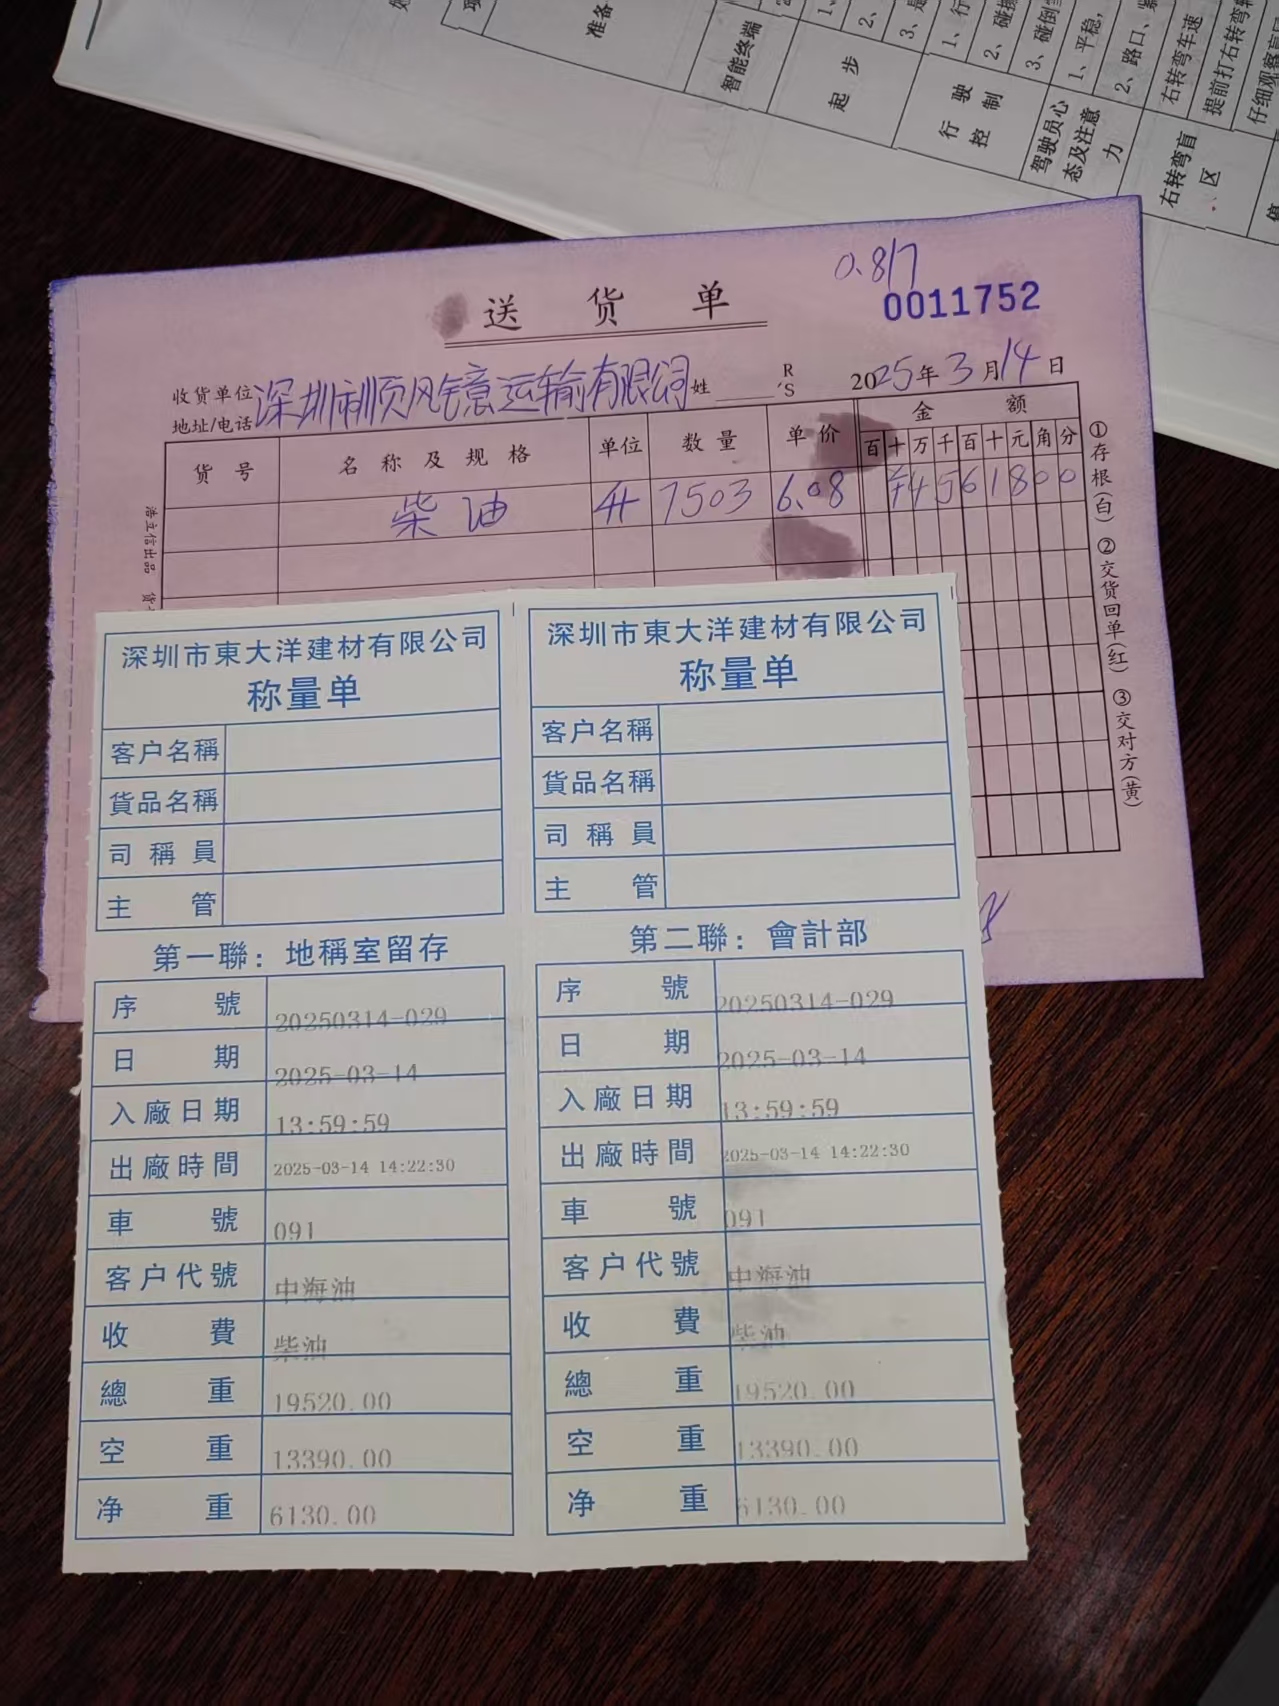 准备
智能终端
起步
行驶控制
1、行
2、碰撞
3、碰倒
驾驶员心态及注意力
1、平稳，
2、路口、
右转弯盲区
右转弯车速
提前打右转弯
仔细观察盲区
0.817
送货单
0011752
收货单位 深圳市顺风镱意运输有限公司 姓 R/S 2025年3月14日
地址/电话
货号 名称及规格 单位 数量 单价 金额
百 十 万 千 百 十 元 角 分
柴油 升 7503 6.08 ¥4561800
①存根(白) ②交货回单(红) ③交对方(黄)
浩立信出品
深圳市東大洋建材有限公司
称量单
客户名稱
貨品名稱
司稱員
主管
第一聯：地稱室留存
序號 20250314-029
日期 2025-03-14
入廠日期 13:59:59
出廠時間 2025-03-14 14:22:30
車號 091
客户代號 中海油
收費 柴油
總重 19520.00
空重 13390.00
净重 6130.00
深圳市東大洋建材有限公司
称量单
客户名稱
貨品名稱
司稱員
主管
第二聯：會計部
序號 20250314-029
日期 2025-03-14
入廠日期 13:59:59
出廠時間 2025-03-14 14:22:30
車號 091
客户代號 中海油
收費 柴油
總重 19520.00
空重 13390.00
净重 6130.00